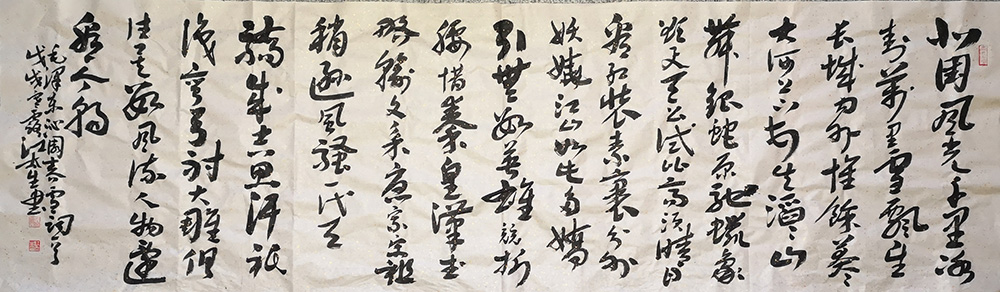 北国风光千里冰
封萬里雪飄望
长城内外惟餘莽々
大河上下顿失滔々山
舞银蛇原驰蜡象
欲与天公试比高须晴日
看红装素裹分外
妖娆江山如此多娇
引無数英雄競折
腰惜秦皇漢武
略输文采唐宗宋祖
稍逊风骚一代天
骄成吉思汗祇
識弯弓射大雕俱
往矣数风流人物還
看今朝
毛泽东沁园春雪词一首
戊戌寒露江生書